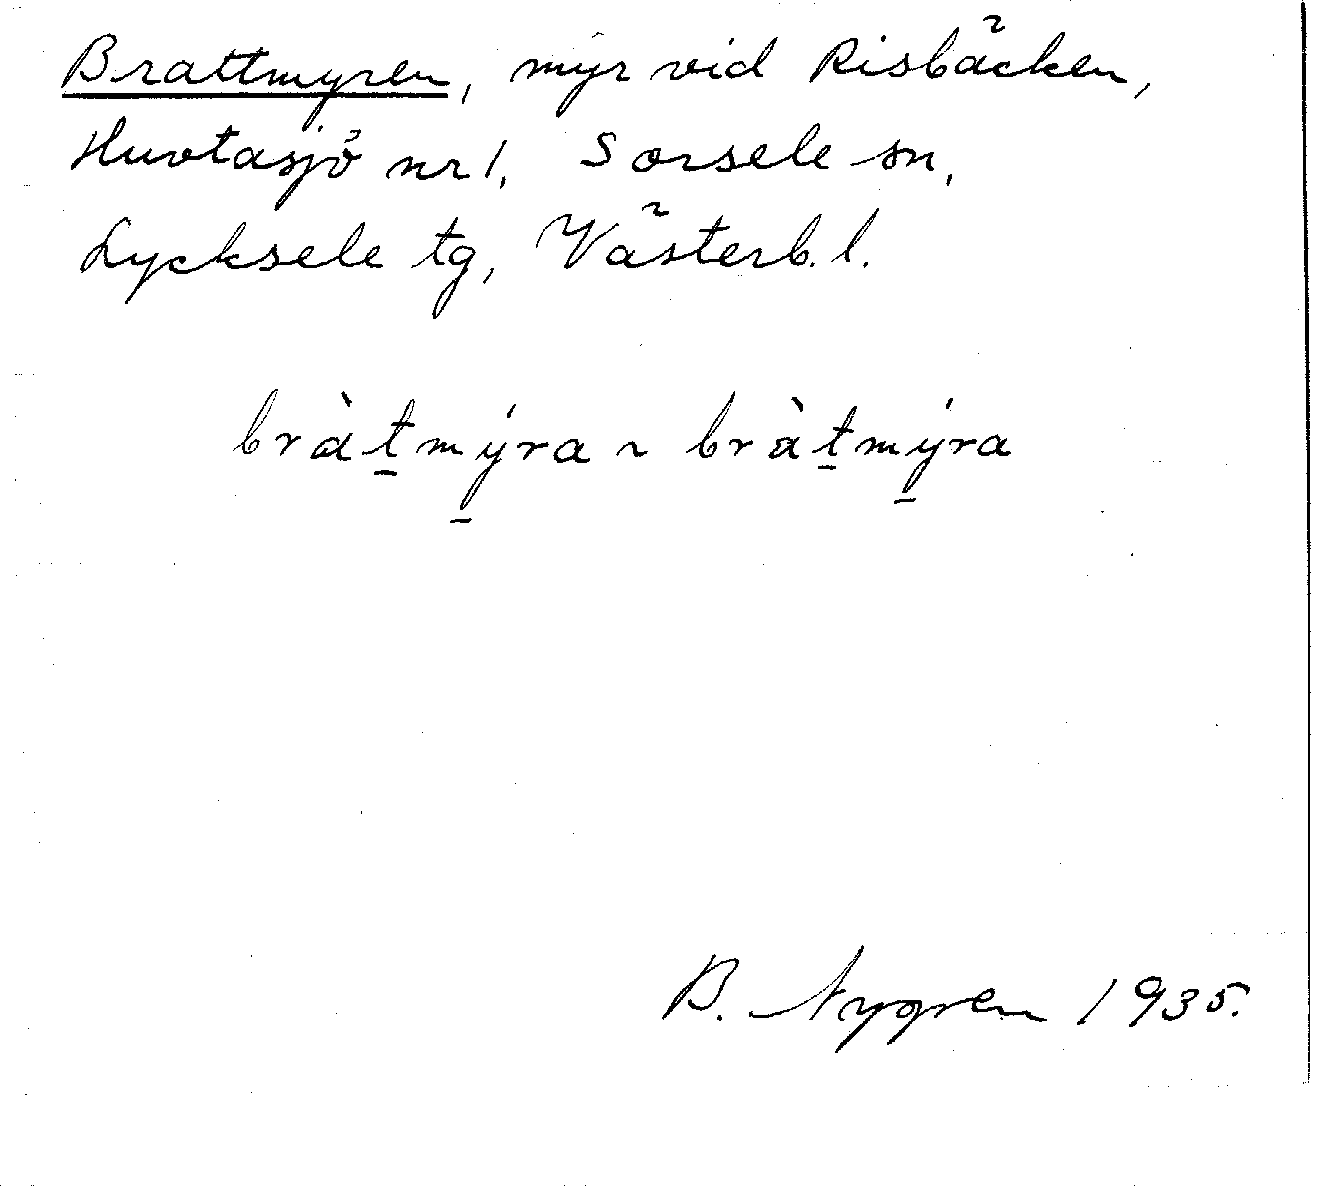 Brattmyren, myr vid Risbäcken,
Huvtasjö nr 1, Sorsele sn,
Lycksele tg, Västerb. l.
bràt̲mý̲ra ~ bràt̲mý̲ra
B. Nygren 1935.